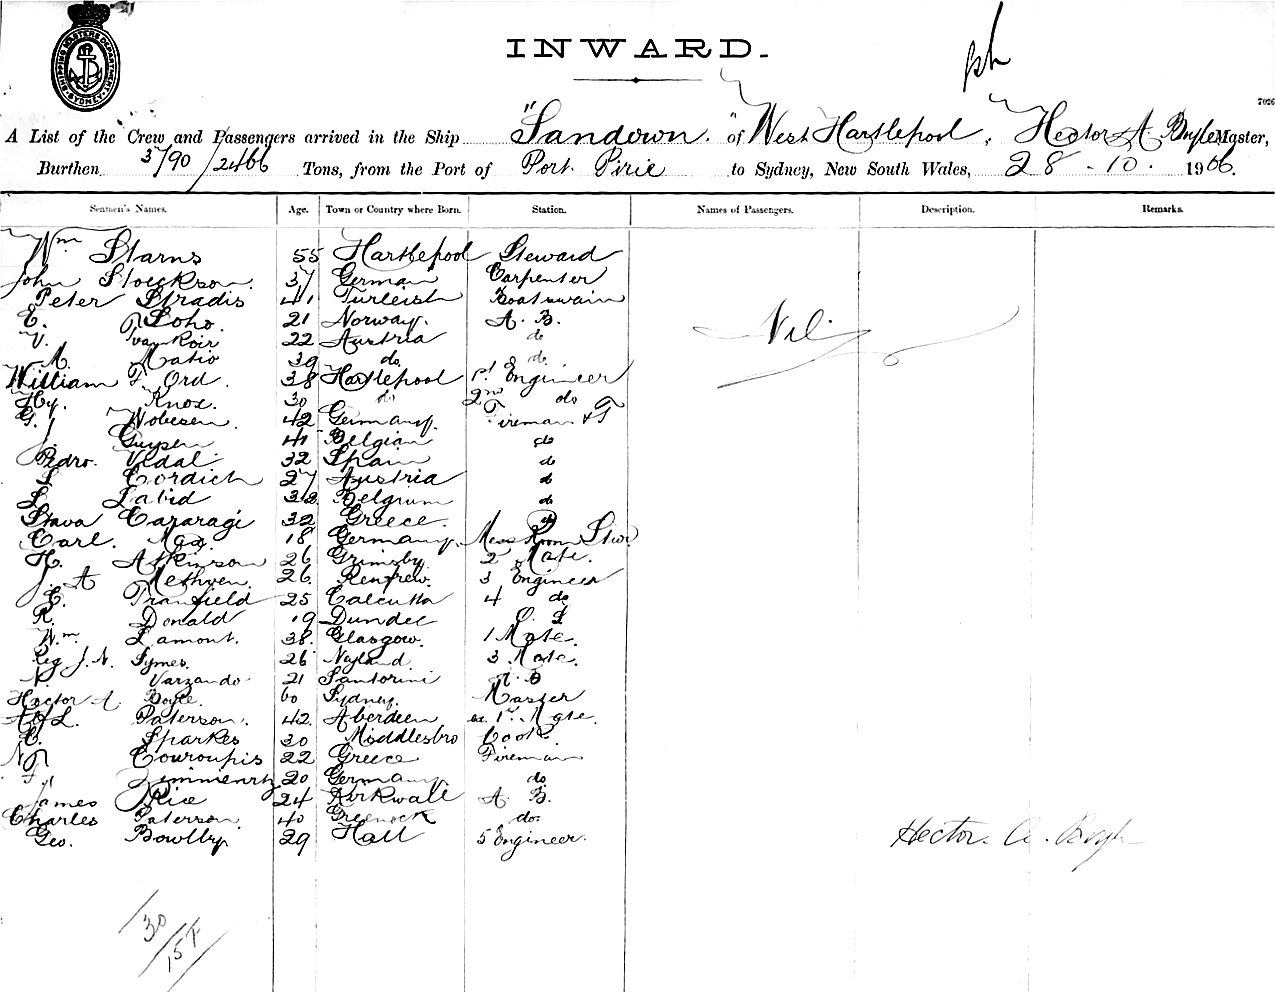 SHIPPING MASTERS DEPARTMENT SYDNEY
INWARD.
7026
A List of the Crew and Passengers arrived in the Ship "Sandown." of West Hartlepool, Hector A Boyle Master,
Burthen 3790/2466 Tons, from the Port of Port Pirie to Sydney, New South Wales, 28-10. 1906.
Seamen's Names. Age. Town or Country where Born. Station. Names of Passengers. Description. Remarks.
Wm Starns 55 Hartlepool Steward
John Stockson. 37 German Carpenter
Peter Stradis 41 Turkish Boatswain
E. Soho. 21 Norway. A. B.
V. van Roir 22 Austria do
Nil
M. Matio 39 do. do.
William F. Ord. 38 Hartlepool 1st Engineer
Hy. Knox. 30 do 2nd do
G. Wobesen. 42 Germany. Fireman & T
J. Guysen 41 Belgian do
Pedro. Vidal 32 Spain do
L Cordich 27 Austria do
L. Labid 32 Belgrum do
Stava Cararagi 32 Greece. do
Carl. Max. 18 Germany. Mess Room Stwd
H. Atkinson 26 Grimsby. 2 Mate.
J. A Methven. 26. Renfrew. 3 Engineer
C. Tranfield 25 Calcutta 4 do
R. Donald 19 Dundee O. S
Wm. Lamont. 38. Glasgow. 1 Mate.
Reg J. N. Symes. 26 Nayland 3 Mate.
N. Varzando 21 Santorini A. B
Hector A Boyle. 60 Sydney. Master
A. L. Paterson. 42. Aberdeen 1st Mate.
C. Sparkes 30 Middlesbro Cook.
N Couroupis 22 Greece Fireman
F. Zimmienry 20 Germany. do
James Rice 24 Kirkwall A. B.
Charles Paterson 40 Greenock do.
Geo. Bowlby 29 Hall 5 Engineer.
Hector. A. Boyle
30/15 F